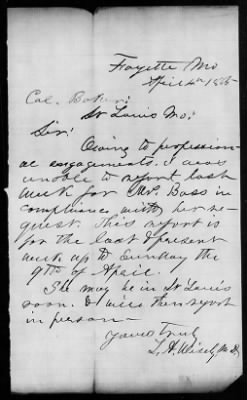 Fayette Mo
April 4th 1865
Col. Baker:
St Louis Mo:
Sir:
Owing to profession-
al engagements. I was
unable to report last
week for Mr. Bass in
compliance with her re-
quest. This report is
for the last & present
week up to Sunday the
9th of April.
I may be in St Louis
soon. & will then report
in person—
Yours truly